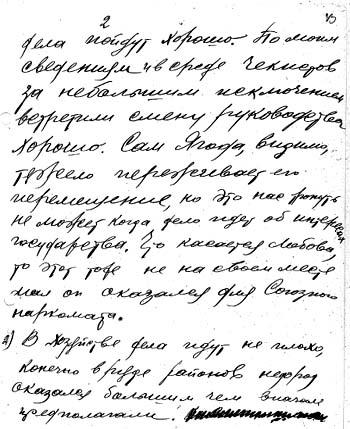 2
дела пойдут хорошо. По моим
сведениям и в среде чекистов
за небольшим исключением
встретили смену руководства
хорошо. Сам Ягода, видимо,
тяжело переживает его
перемещение, но это нас тронуть
не может когда дело идет об интересах
государства. Что касается Лобова,
то этот тоже не на своем месте
мал он оказался для Союзного
наркомата.
2) В хозяйстве дела идут не плохо,
конечно в ряде районов недород
оказался большим чем вначале
предполагали.